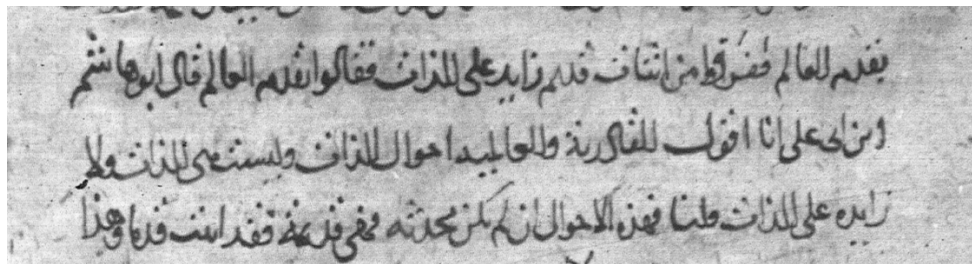 بقدم العالم ففرقوا من اثبات قديم زايد على الذات فقالوا بقدم العالم قال ابو هاشم
ابن ابي علي انا اقول القادرية والعالمية احوال الذات وليست هي الذات ولا
زايده على الذات قلنا فهذه الاحوال ان لم تكن محدثه فهي قديمة فقد اثبت قدما وهذا